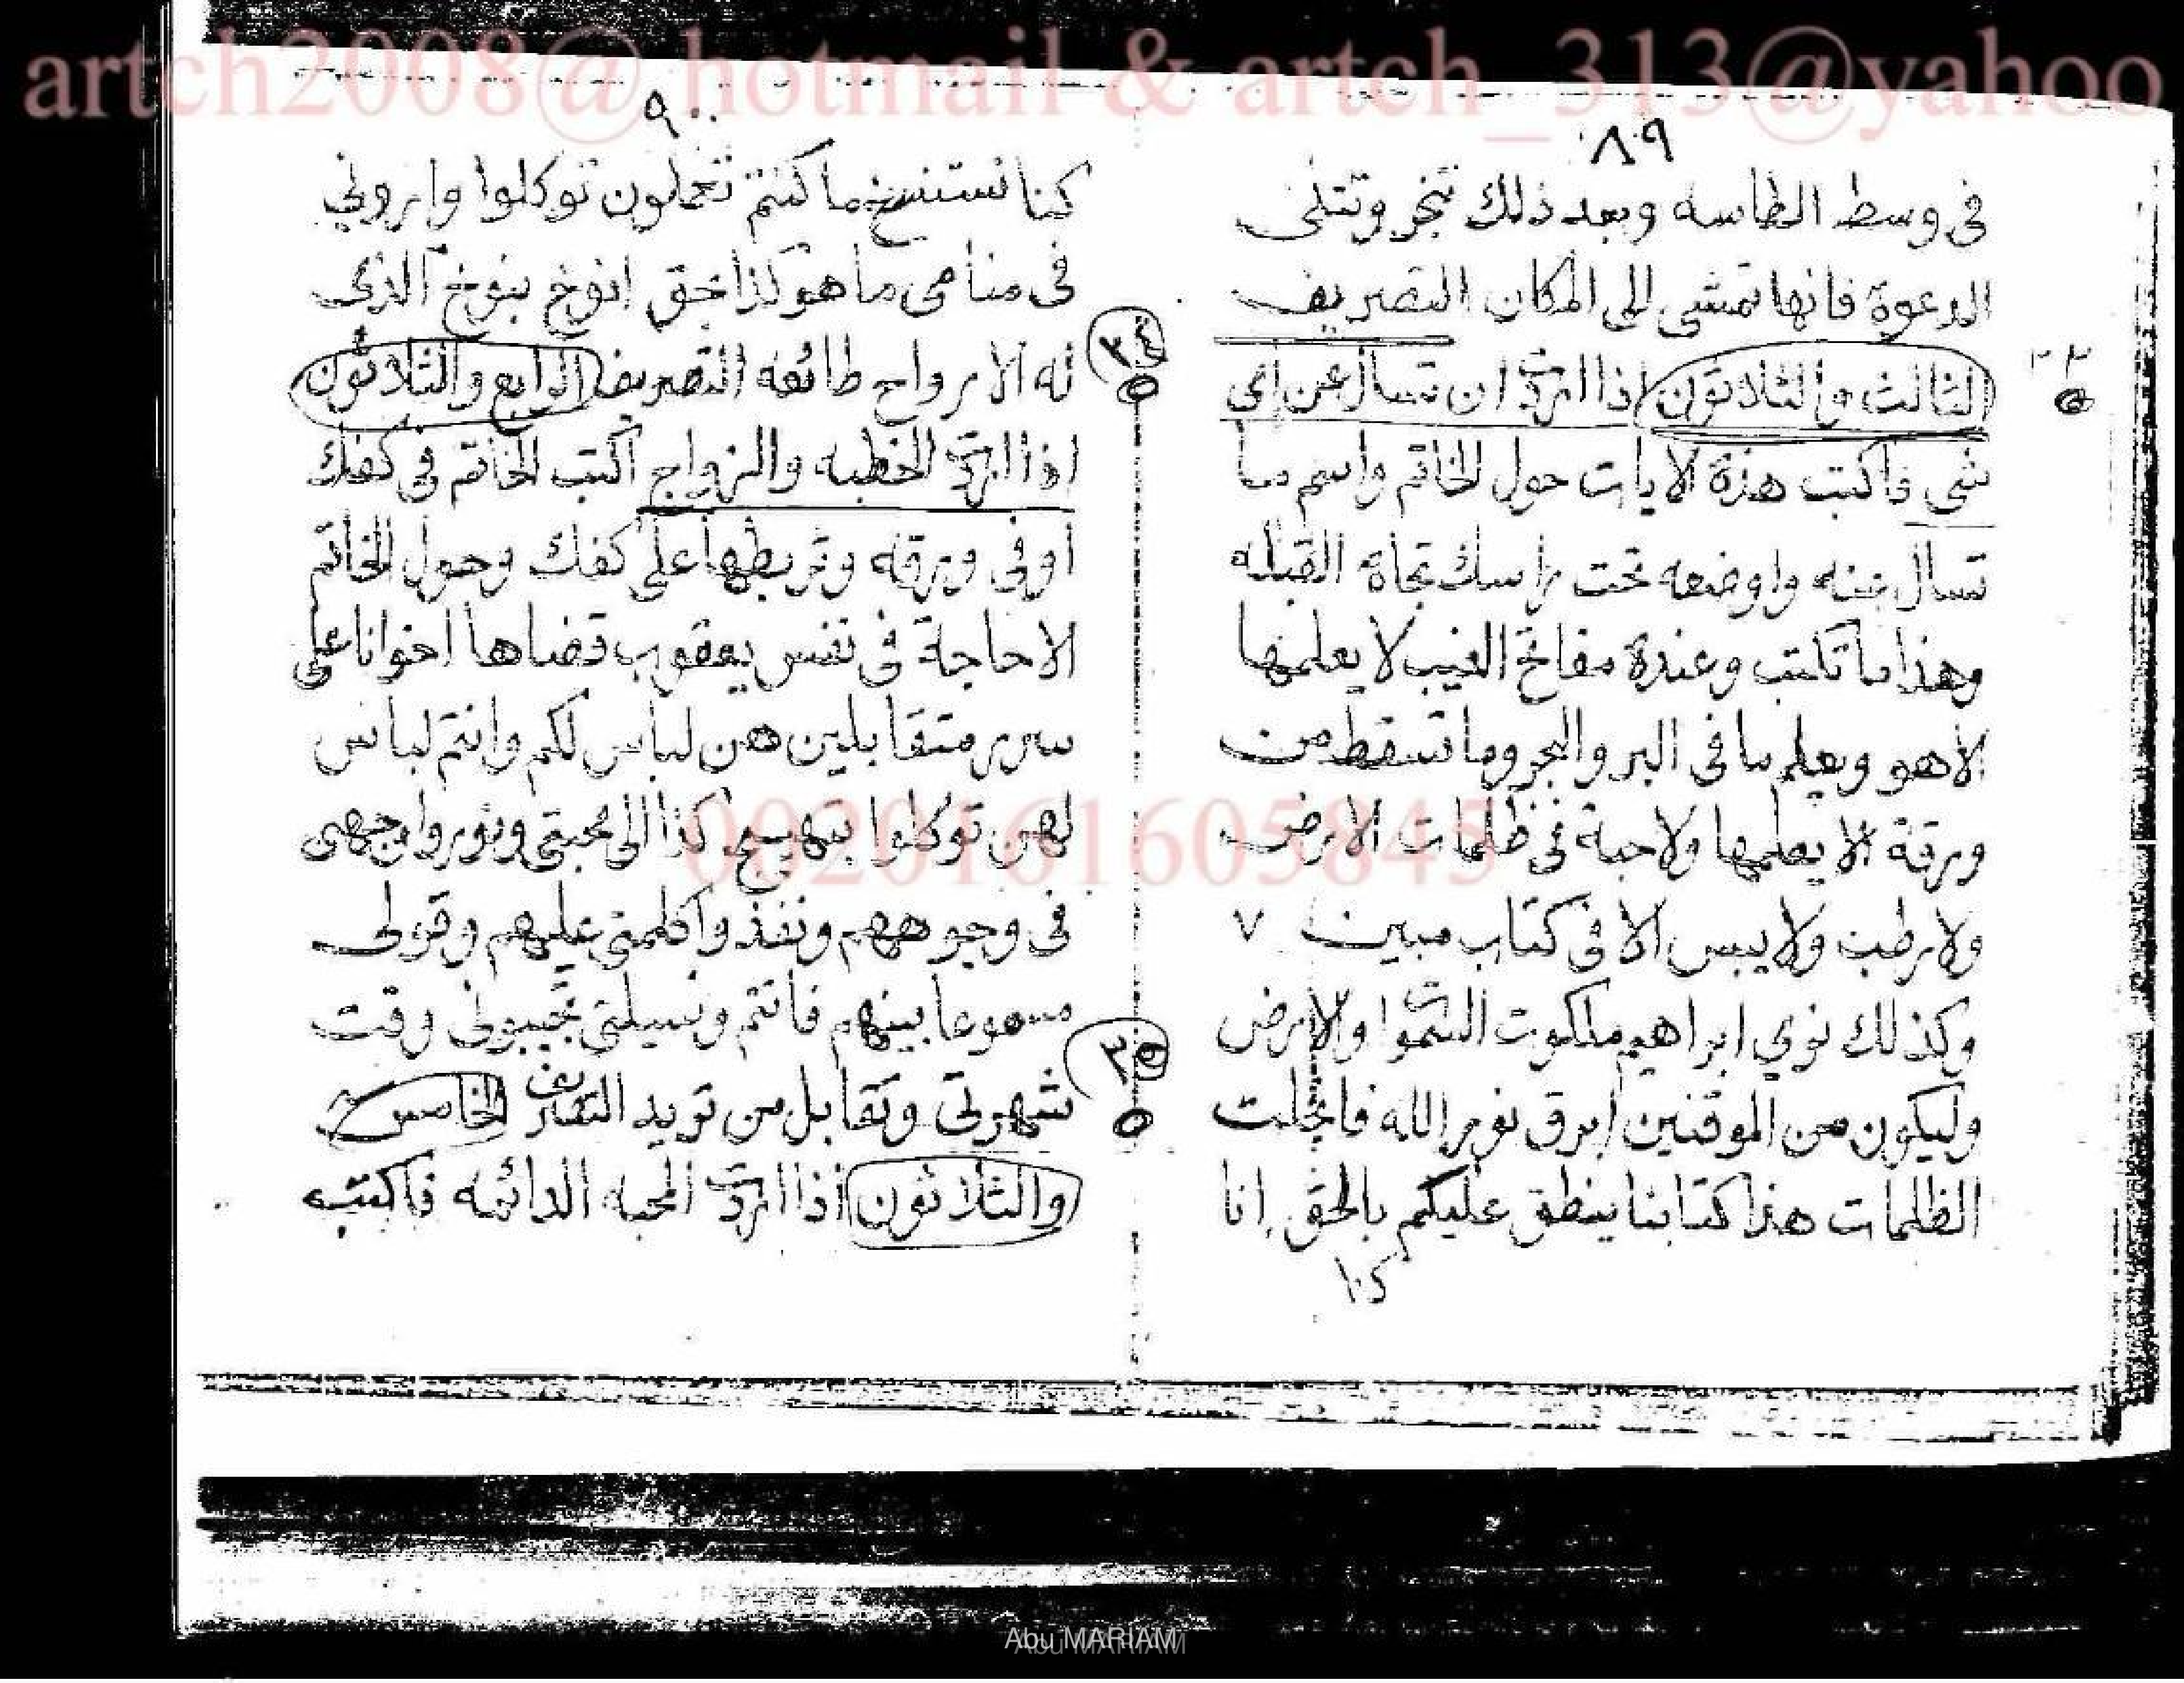 artch2008@ hotmail & artch_313@yahoo
٨٩
في وسط الطاسه وبعد ذلك تبخر وتتلى
الدعوة فانها تمشى الى المكان التصريف
الثالث والثلاثون اذا اردت ان تسال عن اى
شى فاكتب هذة الايات حول الخاتم واسم ما
تسال عنه واوضعه تحت راسك تجاة القبله
وهذا ما تكتب وعندة مفاتح الغيب لا يعلمها
الا هو ويعلم ما فى البر والبحر وما تسقط من
ورقة الا يعلمها ولا حبة فى ظلمات الارض
ولا رطب ولا يبس الا فى كتاب مبين ٧
وكذلك نوي ابراهيم ملكوت السموات والارض
وليكون من الموقنين ابرق نور الله فانجلت
الظلمات هذا كتابنا ينطق عليكم بالحق انا
٣٣
٩٠
كنا نستنسخ ما كنتم تعملون توكلوا واروني
فى منامى ما هو كذا بحق انوخ بنوخ الذى
له الارواح طائعه التصريف الرابع والثلاثون
اذا اردت الخطبه والزواج اكتب الخاتم فى كفك
او فى ورقه وتربطها على كفك وحول الخاتم
الا حاجة فى نفس يعقوب قضاها اخوانا على
سرر متقابلين هن لباس لكم وانتم لباس
لهن توكلوا بتهييج كذا الى محبتى ونوروا وجهى
فى وجوههم ونفذوا كلمتى عليهم وقولى
مسموعا بينهم فانتم وسيلتى تجيبونى وقت
شهوتى وتقابل من تريد التصريف الخامس
والثلاثون اذا اردت المحبه الدائمه فاكتب
٣٤
٣٥
0020161605845
Abu MARIAM